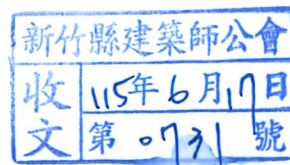 新竹縣建築師公會
收文
115年6月17日
第0731號